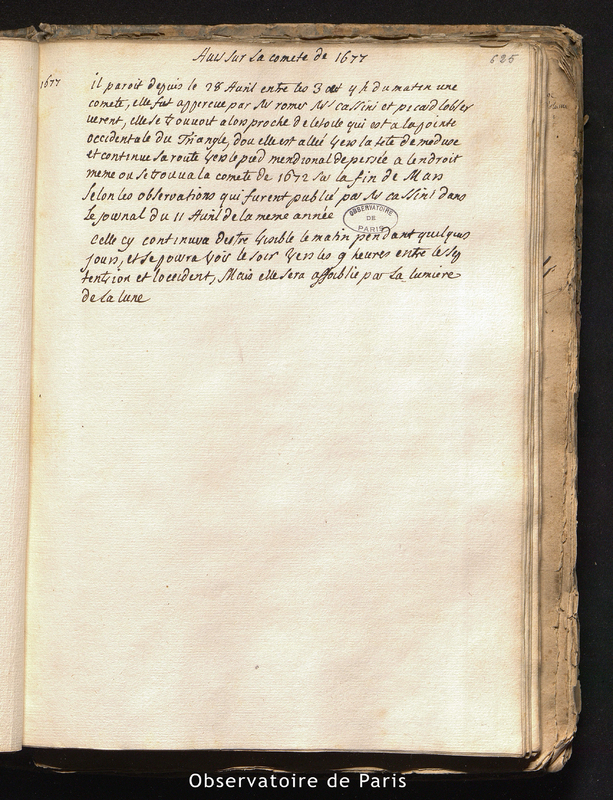 Auis sur La comete de 1677
625
1677
il paroit depuis le 28 Auril entre les 3 et 4 h du matin une
comete, elle fut appercue par Mrs romer Mrs cassini et picard lobser
uerent, elle se trouuoit alors proche de letoile qui est a la pointe
occidentale du Triangle, dou elle est allée vers la tete de meduse
et continue sa route vers le pied meridional de persée a lendroit
meme ou se trouua la comete de 1672 sur la fin de Mars
selon les obseruations qui furent publié par Mr cassini dans
le journal du 11 Auril de la meme année
OBSERVATOIRE
DE
PARIS
Celle cy continura destre visible le matin pendant quelques
jours, et se poura voir le soir vers les 9 heures entre le sep
tention et loccident, Mais elle sera affoiblie par La lumiere
de la lune
Observatoire de Paris